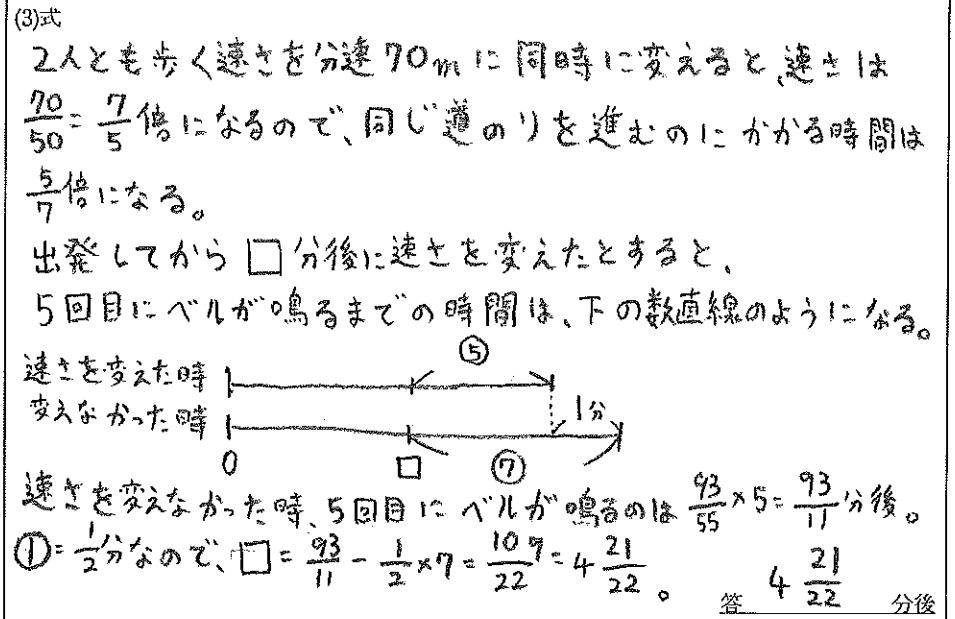 (3)式
2人とも歩く速さを分速70mに同時に変えると、速さは
70/50=7/5倍になるので、同じ道のりを進むのにかかる時間は
5/7倍になる。
出発してから□分後に速さを変えたとすると、
5回目にベルが鳴るまでの時間は、下の数直線のようになる。
⑤
速さを変えた時
変えなかった時
1分
0 □ ⑦
速さを変えなかった時、5回目にベルが鳴るのは93/55×5=93/11分後。
①=1/2分なので、□=93/11-1/2×7=109/22=4 21/22。
答 4 21/22 分後